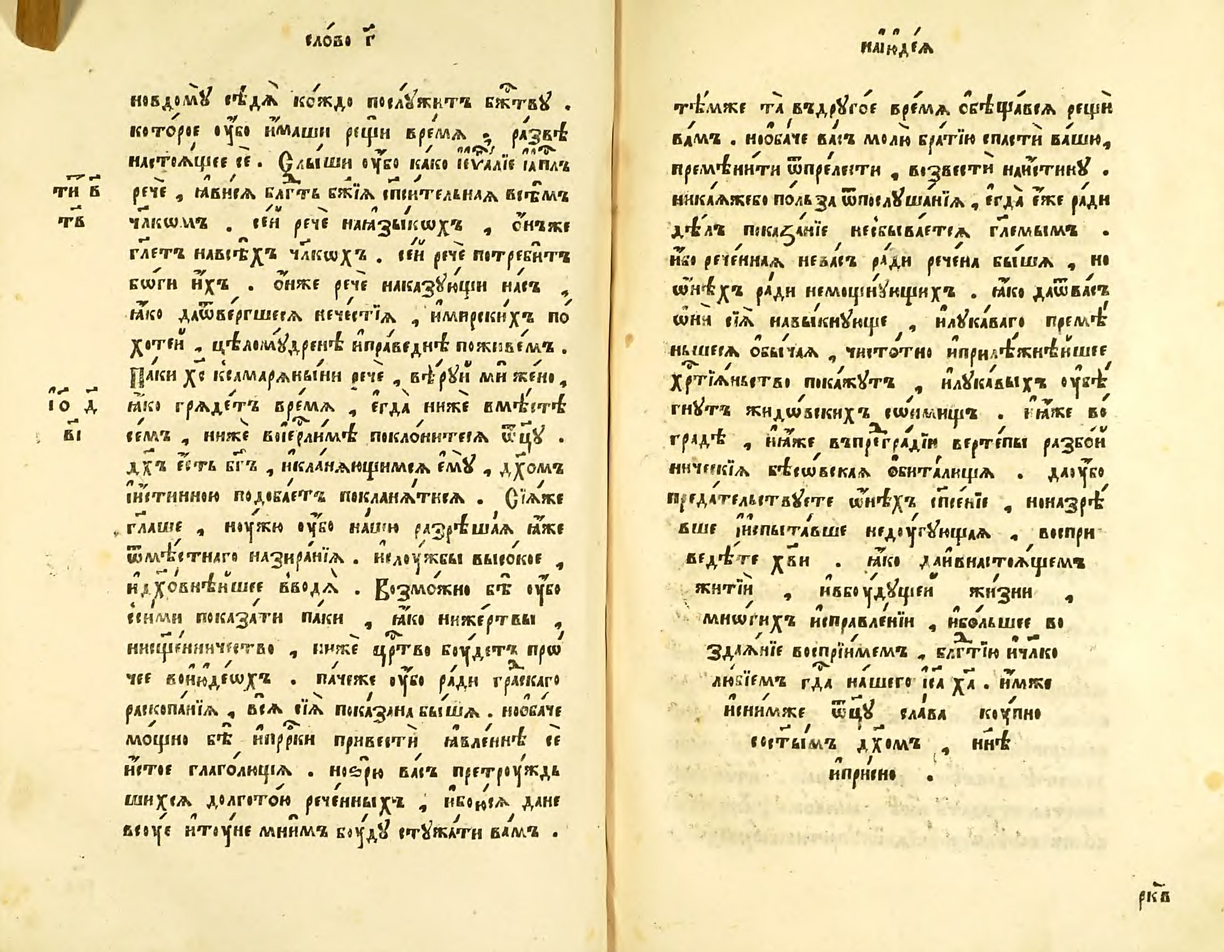 сло́во г҃
новдо́мꙋ сѣ́дѧ̀ ко́ждо послꙋ́житъ бж҃твꙋ .
кото́рое ᲂу҆́бо и҆́маши рещѝ вре́мѧ , ра́звѣ
настоѧ́щее сѐ . Слы́ши ᲂу҆́бо ка́ко
рече̏ , ꙗ҆ви́сѧ бл҃гть бж҃їѧ сп҃си́тельнаѧ всѣ́мъ
ти҃ в҃
чл҃кѡмъ . се́й рече̏ наꙗ҆зы́кѡхъ , ѻ҆́нъже
г҃в
гл҃етъ навсѣ́хъ чл҃кѡхъ . се́й рече̏ потреби́тъ
бо́ги и҆̀хъ . ѻ҆́нже рече̏ наказꙋ́ющи на́съ ,
ꙗ҆́ко даѿве́ргшесѧ нече́стїѧ , и҆мирски́хъ по́
хоте́й , цѣломꙋ́дренѣ и҆пра́веднѣ пожи́ве́мъ .
Па́ки хс҃ ксамарѧны́ни рече̏ , вѣ́рꙋй ми же́но ,
ꙗ҆́ко грѧде́тъ вре́мѧ , є҆гда̀ ни́же вмѣ́стѣ
і҆о҃ д҃
се́мъ , ни́же воїерⷭ҇ли́мѣ поклони́тесѧ ѿц҃ꙋ .
в҃і
дх҃ъ є҆́сть бг҃ъ , и҆кла́нѧющимсѧ є҆мꙋ̀ , дх҃омъ
и҆и́стинною подоба́етъ покланѧ́тисѧ . Сїѧ́же
гл҃аше , нꙋ́жю ᲂу҆́бо на́шю разрѣша́ѧ ꙗ҆́же
ѿмѣ́стнаго назира́нїѧ . и҆слꙋ́жбы высо́кое ,
и҆дх҃о́внѣйшее вво́дѧ . Возмо́жно бѣ̀ ᲂу҆́бо
се́ими показа́ти па́ки , ꙗ҆́ко ниже́ртвы ,
нисщ҃е́нничество , ни́же црⷭ҇тво бꙋ́детъ про́
чее во́и҆ꙋде́ѡхъ . па́чеже ᲂу҆́бо ра́ди гра́дскаго
раскопа́нїѧ , всѧ̀ сїѧ̀ пока́зана бы́шѧ . но́ѻ҆ба́че
мо́щно бѣ̀ и҆прⷪ҇ро́ки привестѝ ꙗ҆вле́ннѣ сѐ
и҆́стое глаго́лющїѧ . но́зрю ва́съ претрꙋ́ждь
шихсѧ долгото́ю рече́нныхъ , и҆бою́сѧ дане
всꙋ́е и҆тꙋ́не мни́мъ бꙋ́дꙋ стꙋжа́ти ва́мъ .
наі҆ю҆де́ѧ
тѣ́мже та̀ въдрꙋго́е вре́мѧ ѻ҆бѣща́всѧ рещѝ
ва́мъ . но́ѻ҆ба́че ва́съ молю̀ бра́тїю спастѝ ва́шю,
премѣни́ти ѿпре́лести , возвестѝ наи́стинꙋ .
никаѧ́жебо по́льза ѿпослꙋша́нїѧ , є҆гда̀ є҆́же ра́ди
дѣ́лъ показа́нїе несбыва́етсѧ гл҃емымъ .
и҆́бо рече́ннаѧ нева́съ ра́ди рече́на бы́шѧ , но
ѡ҆нѣ́хъ ра́ди немощнꙋ́ющихъ . ꙗ҆́ко даѿва́съ
ѡ҆нѝ сїѧ̀ навы́кнꙋще , и҆лꙋка́ваго премѣ́
ньшесѧ ѻ҆бы́чаѧ , чисто́тно и҆прилѣ́жнѣйшее
хрⷭ҇тїѧ́ньство пока́жꙋтъ , и҆лꙋка́выхъ ᲂу҆бѣ́
гнꙋтъ жидо́вскихъ со́нмищъ . и҆ꙗ҆́же во
гра́дѣ , и҆ꙗ҆́же въпрегра́дїи верте́пы разбо́й
ническїѧ бѣсо́вскаѧ ѻ҆бита́лища . даᲂу҆́бо
преда́тельствꙋете ѡ҆нѣ́хъ сп҃се́нїе , ноназрѣ́
вше и҆и҆спыта́вше недꙋ́гꙋющаѧ , воспри
веде́те хв҃и . ꙗ҆́ко да́и҆внастоѧ́щемъ
житїѝ , и҆вбꙋ́дꙋщей жи́зни ,
мно́гихъ и҆справле́нїи , и҆бо́льшее во
здаѧ́нїе воспрїи́мемъ , бл҃гⷣтїю и҆чл҃ко
лю́бїемъ гдⷭ҇а на́шего і҆с҃а хⷭ҇а . и҆́мже
и҆сни́мже ѿц҃ꙋ сла́ва кꙋ́пно
сост҃ы́мъ дх҃омъ , нн҃ѣ
и҆при́сно .
рк҃в